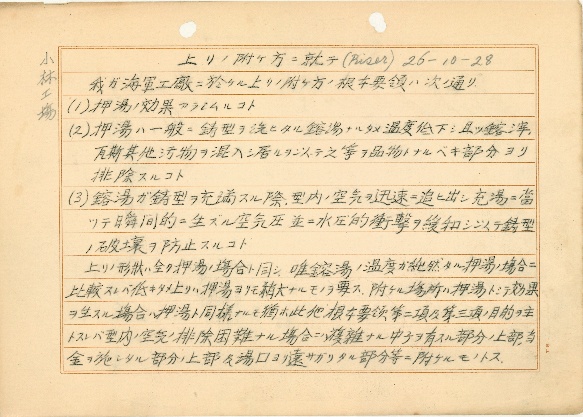 小林工場
上リノ附ケ方ニ就テ (Riser) 26-10-28
我ガ海軍工廠ニ於ケル上リノ附ケ方ノ根本要領ハ次ノ通リ
(1) 押湯ノ効果アラシムルコト
(2) 押湯ハ一般ニ鋳型ヲ流レタル鎔湯ナルタメ温度低下シ且ツ鎔滓,
瓦斯其他汚物ヲ混入シ居ルヲ以ッテ之等ヲ品物トナルベキ部分ヨリ
排除スルコト
(3) 鎔湯ガ鋳型ヲ充満スル際,型内ノ空気ヲ迅速ニ追ヒ出シ充湯ニ当
ツテ瞬間的ニ生ズル空気圧並ニ水圧的衝撃ヲ緩和シ以ッテ鋳型
ノ破壊ヲ防止スルコト
上リノ形状ハ全ク押湯ノ場合ト同シ 唯鎔湯ノ温度ガ純然タル押湯ノ場合ニ
比較スレバ低キタメ上リハ押湯ヨリモ稍大ナルモノヲ要ス、附ケル場所ハ押湯トシテ効果
ヲ生スル場合ハ押湯ト同様ナルモ猶ホ此他根本要領第二項及第三項ノ目的ヲ主
トスレバ型内ノ空気ノ排除困難ナル場合ニハ複雑ナル中子ヲ有スル部分ノ上部,当
金ヲ施シタル部分ノ上部及湯口ヨリ遠サガリタル部分等ニ附ケルモノトス.